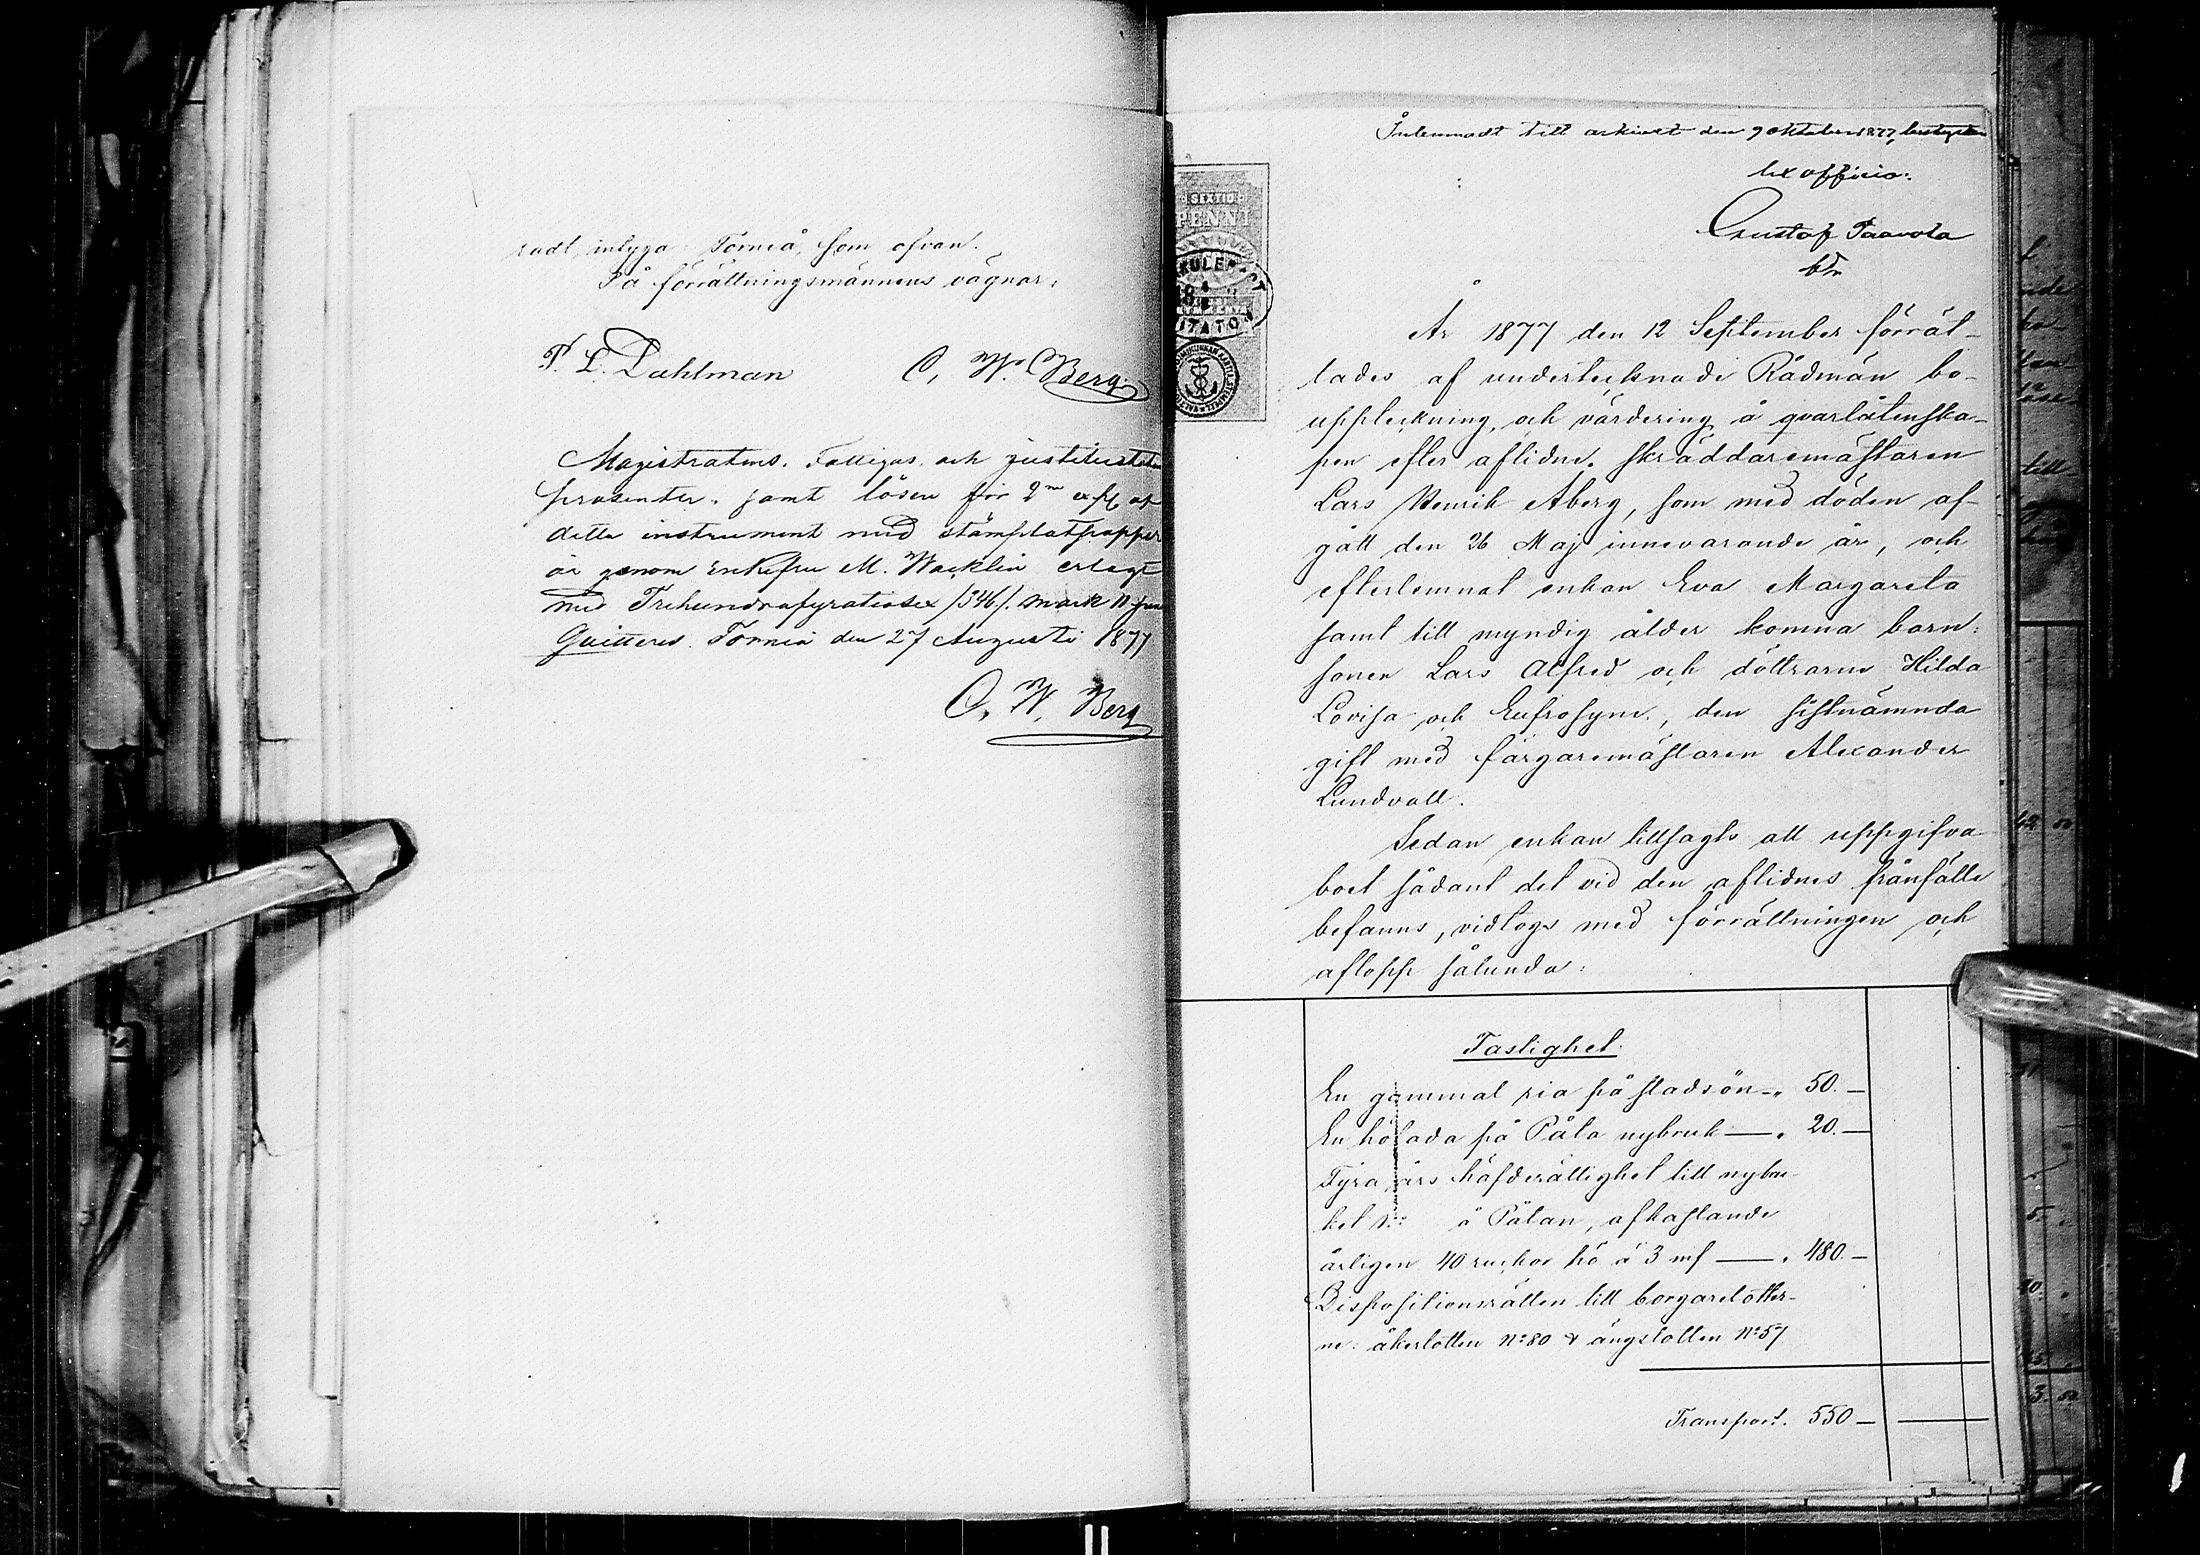 radt, intyga Torneå, som ofvan.
På förrättningsmännens vägnar:
P. L. Dahlman O. W. Berg
Magistratens, Fattigas, och justitiestats
prosenter, samt lösen för 2ne expl af
detta instrument med stämplatpapper
är genom Enkefru M. Wacklin erlagt
med Trehundrafyratiosex /346/. mark 11 pen
Quitteras. Torneå den 27 Augusti 1877
O. W. Berg
Inlemnadt till arkivet den 9 oktober 1877, betygar
Ex officio:
Gustaf Paavola
SEXTIO
PENNI
År 1877 den 12 September förrät-
tades af undertecknade Rådmän bo-
uppteckning, och värdering å qvarlåtenska-
pen efter aflidne skräddaremästaren
Lars Henrik Åberg, som med döden af-
gått den 26 Maj innevarande år, och
efterlemnat enkan Eva Margareta
samt till myndig ålder komna barn:
sonen Lars Alfred och döttrarne Hilda
Lovisa och Eufrosyne, den sistnämnda
gift med färgaremästaren Alexander
Lundvall.
Sedan enkan tillsagts att uppgifva
boet sådant det vid den aflidnes frånfälle
befanns, vidtogs med förrättningen och
aflopp sålunda:
Fastighet.
En gammal ria på stadsön -„ 50. —
En hölada på Påla nybruk — „ 20. —
Fyra års häfderättighet till nybru-
ket å Pålan, afkastande
årligen 40 ruckor hö á 3 mf — „ 480. —
Dispositionsrätten till borgarelotter-
ne: åkerlotten No 80 & ängslotten No 57
Transport. 550 —